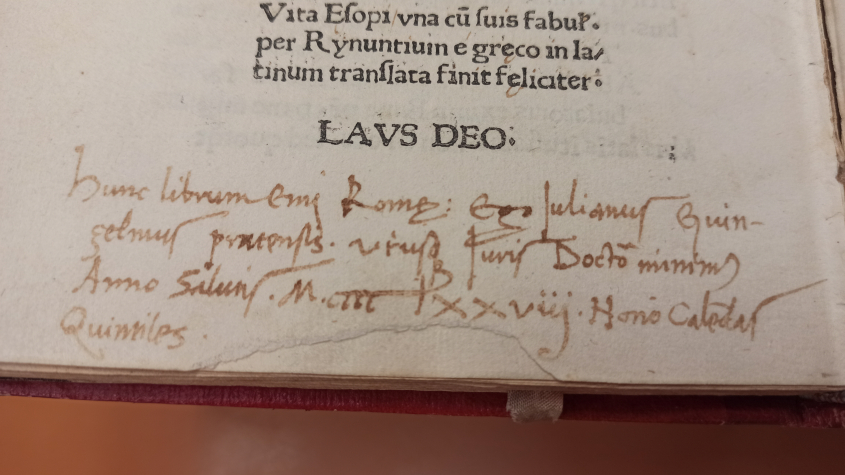 Vita Eſopi vna cū ſuis fabuł.
per Rynuntium e gręco in la/
tinum tranſlata finit fęliciter:
LAVS DEO:
Hunc librum Emj Romę: Ego Julianus Quin-
gelmus pratensis. vtriusq Juris Doctō minimꝰ
Anno Salutis. M.cccc lxxviij. Nono Calēdas
Quintiles.